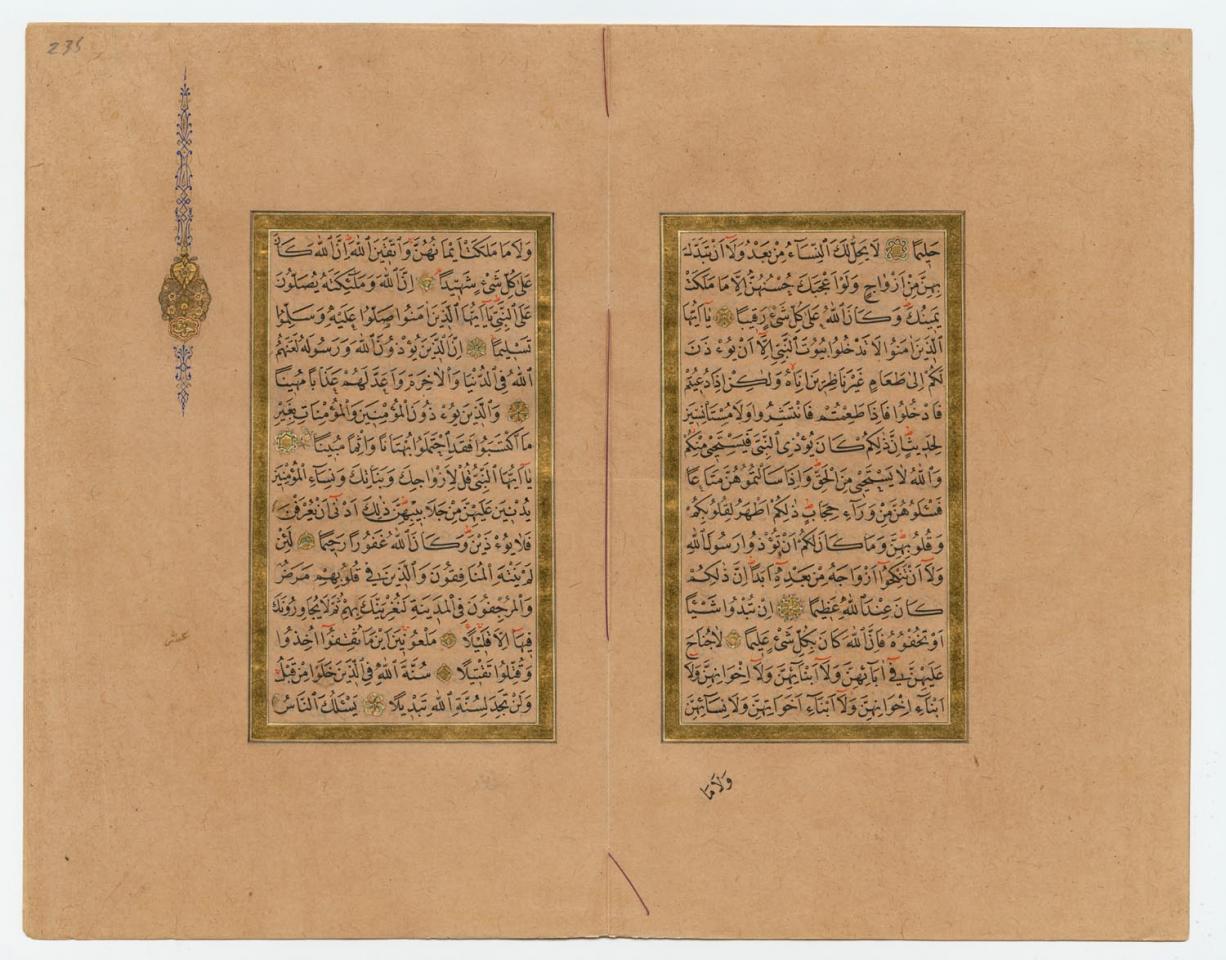 حَلِيمًا لَا يَحِلُّ لَكَ النِّسَاءُ مِنْ بَعْدُ وَلَا أَنْ تَبَدَّلَ
بِهِنَّ مِنْ أَزْوَاجٍ وَلَوْ أَعْجَبَكَ حُسْنُهُنَّ إِلَّا مَا مَلَكَتْ
يَمِينُكَ وَكَانَ اللّٰهُ عَلَىٰ كُلِّ شَيْءٍ رَقِيبًا يَا أَيُّهَا
الَّذِينَ اٰمَنُوا لَا تَدْخُلُوا بُيُوتَ النَّبِيِّ إِلَّا أَنْ يُؤْذَنَ
لَكُمْ إِلَىٰ طَعَامٍ غَيْرَ نَاظِرِينَ إِنَاهُ وَلٰكِنْ إِذَا دُعِيتُمْ
فَادْخُلُوا فَإِذَا طَعِمْتُمْ فَانْتَشِرُوا وَلَا مُسْتَأْنِسِينَ
لِحَدِيثٍ إِنَّ ذٰلِكُمْ كَانَ يُؤْذِي النَّبِيَّ فَيَسْتَحْيِي مِنْكُمْ
وَاللّٰهُ لَا يَسْتَحْيِي مِنَ الْحَقِّ وَإِذَا سَأَلْتُمُوهُنَّ مَتَاعًا
فَسْئَلُوهُنَّ مِنْ وَرَاءِ حِجَابٍ ذٰلِكُمْ أَطْهَرُ لِقُلُوبِكُمْ
وَقُلُوبِهِنَّ وَمَا كَانَ لَكُمْ أَنْ تُؤْذُوا رَسُولَ اللّٰهِ
وَلَا أَنْ تَنْكِحُوا أَزْوَاجَهُ مِنْ بَعْدِهِ أَبَدًا إِنَّ ذٰلِكُمْ
كَانَ عِنْدَ اللّٰهِ عَظِيمًا إِنْ تُبْدُوا شَيْئًا
أَوْ تُخْفُوهُ فَإِنَّ اللّٰهَ كَانَ بِكُلِّ شَيْءٍ عَلِيمًا لَا جُنَاحَ
عَلَيْهِنَّ فِي اٰبَائِهِنَّ وَلَا أَبْنَائِهِنَّ وَلَا إِخْوَانِهِنَّ وَلَا
أَبْنَاءِ إِخْوَانِهِنَّ وَلَا أَبْنَاءِ أَخَوَاتِهِنَّ وَلَا نِسَائِهِنَّ
وَلَا مَا
235
وَلَا مَا مَلَكَتْ أَيْمَانُهُنَّ وَاتَّقِينَ اللّٰهَ إِنَّ اللّٰهَ كَانَ
عَلَىٰ كُلِّ شَيْءٍ شَهِيدًا إِنَّ اللّٰهَ وَمَلٰئِكَتَهُ يُصَلُّونَ
عَلَى النَّبِيِّ يَا أَيُّهَا الَّذِينَ اٰمَنُوا صَلُّوا عَلَيْهِ وَسَلِّمُوا
تَسْلِيمًا إِنَّ الَّذِينَ يُؤْذُونَ اللّٰهَ وَرَسُولَهُ لَعَنَهُمُ
اللّٰهُ فِي الدُّنْيَا وَالْاٰخِرَةِ وَأَعَدَّ لَهُمْ عَذَابًا مُهِينًا
وَالَّذِينَ يُؤْذُونَ الْمُؤْمِنِينَ وَالْمُؤْمِنَاتِ بِغَيْرِ
مَا اكْتَسَبُوا فَقَدِ احْتَمَلُوا بُهْتَانًا وَإِثْمًا مُبِينًا
يَا أَيُّهَا النَّبِيُّ قُلْ لِأَزْوَاجِكَ وَبَنَاتِكَ وَنِسَاءِ الْمُؤْمِنِينَ
يُدْنِينَ عَلَيْهِنَّ مِنْ جَلَابِيبِهِنَّ ذٰلِكَ أَدْنَىٰ أَنْ يُعْرَفْنَ
فَلَا يُؤْذَيْنَ وَكَانَ اللّٰهُ غَفُورًا رَحِيمًا لَئِنْ
لَمْ يَنْتَهِ الْمُنَافِقُونَ وَالَّذِينَ فِي قُلُوبِهِمْ مَرَضٌ
وَالْمُرْجِفُونَ فِي الْمَدِينَةِ لَنُغْرِيَنَّكَ بِهِمْ ثُمَّ لَا يُجَاوِرُونَكَ
فِيهَا إِلَّا قَلِيلًا مَلْعُونِينَ أَيْنَمَا ثُقِفُوا أُخِذُوا
وَقُتِّلُوا تَقْتِيلًا سُنَّةَ اللّٰهِ فِي الَّذِينَ خَلَوْا مِنْ قَبْلُ
وَلَنْ تَجِدَ لِسُنَّةِ اللّٰهِ تَبْدِيلًا يَسْئَلُكَ النَّاسُ